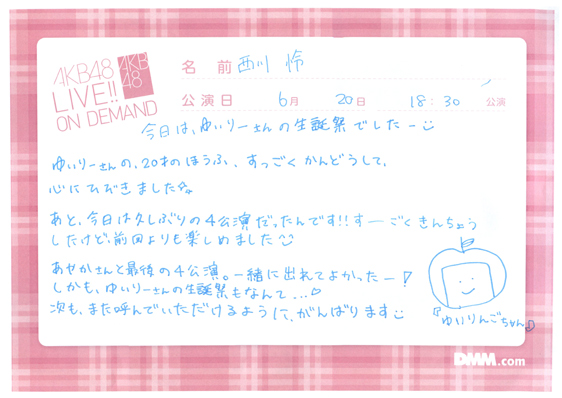 AKB48
LIVE!!
ON DEMAND
AKB
48
名 前 西川 怜
公演日 6月 20日 18:30 公演
今日は、ゆいりーさんの生誕祭でしたー
ゆいりーさんの、20才のほうふ、すっごくかんどうして、
心にひびきました
あと、今日は久しぶりの4公演だったんです!!すーごくきんちょう
したけど、前回よりも楽しめました
あやかさんと最後の4公演。一緒に出れてよかったー!
しかも、ゆいりーさんの生誕祭もなんて...♡
次も、また呼んでいただけるように、がんばります
『ゆいりんごちゃん』
DMM.com